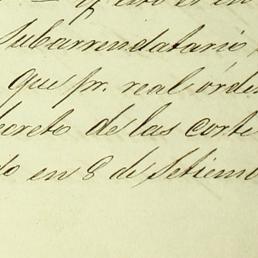 Subarrendatario
que pr. real órde
creto de las corte
do en 8 de Setiem